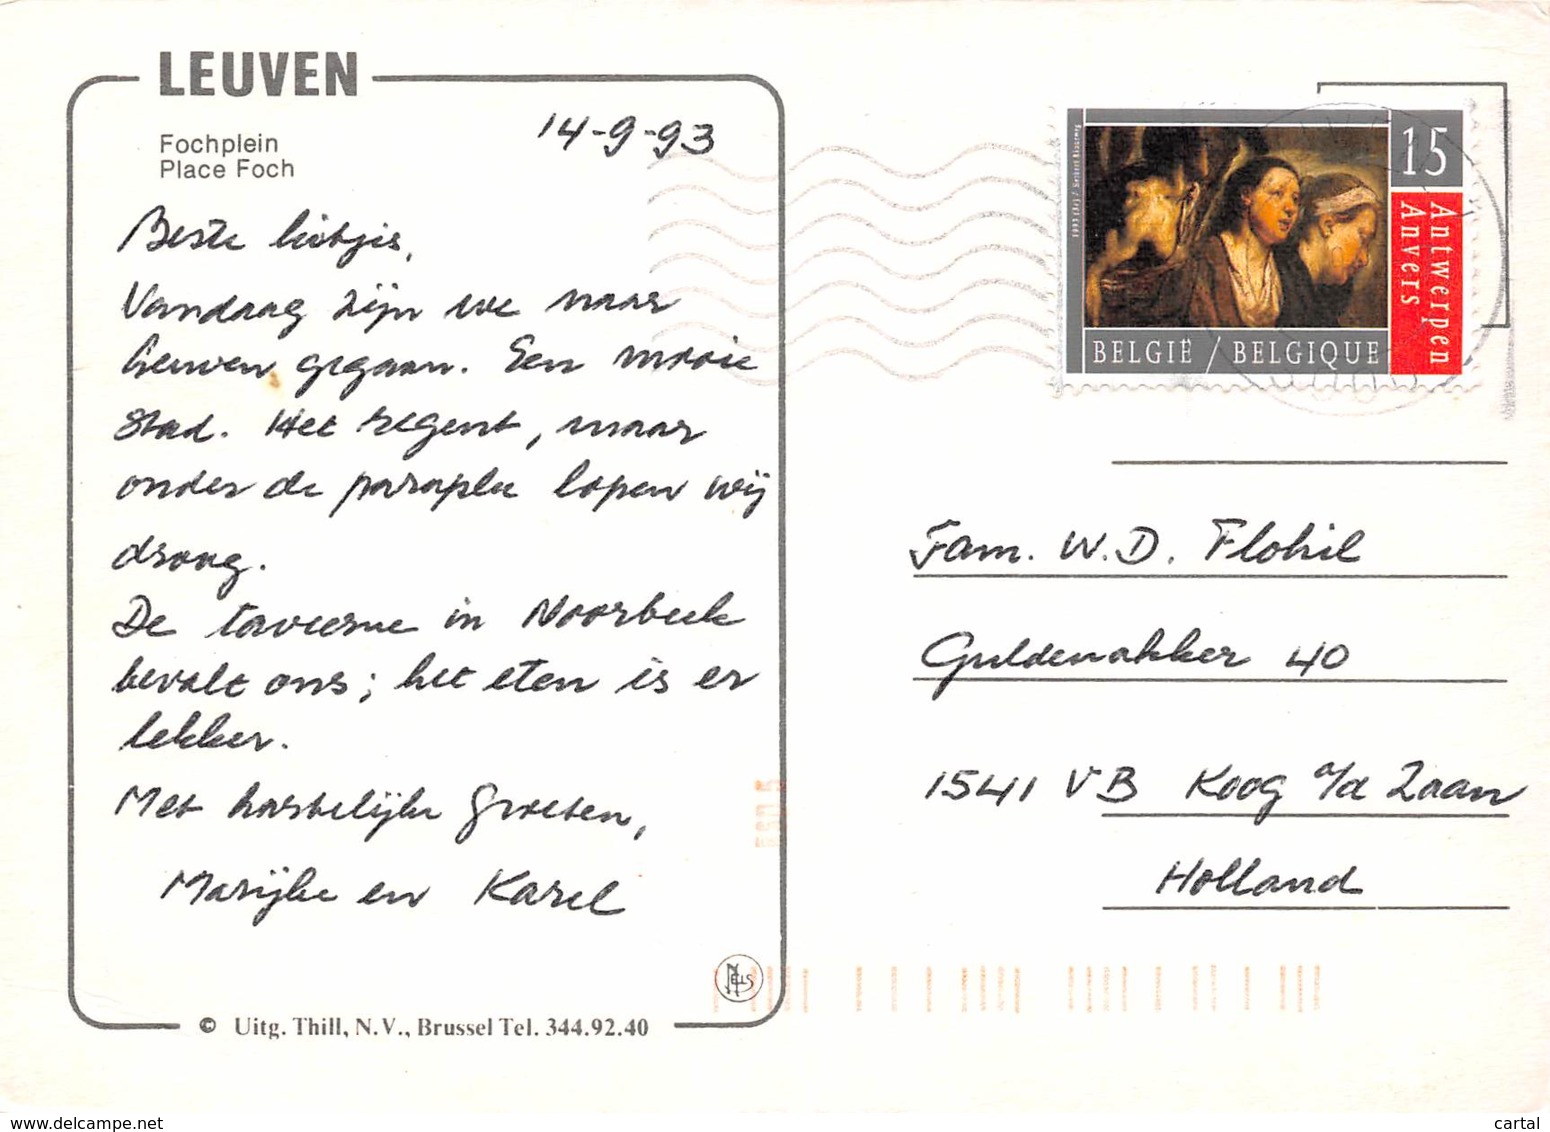 LEUVEN
Fochplein
Place Foch
14-9-93
Beste
Vandaag zijn we naar
Leuven gegaan. Een mooie
stad. Het regent, maar
onder de paraplu lopen wij
droog.
De taveerne in Noorbeek
bevalt ons; het eten is er
lekker.
Met hartelijke groeten,
Marijke en Karel
NELS
© Uitg. Thill, N.V., Brussel Tel. 344.92.40
15
Antwerpen
Anvers
BELGIË / BELGIQUE
Fam. W.D. Flohil
Guldenakker 40
1541 VB Koog a/d Zaan
Holland
www.delcampe.net
cartal